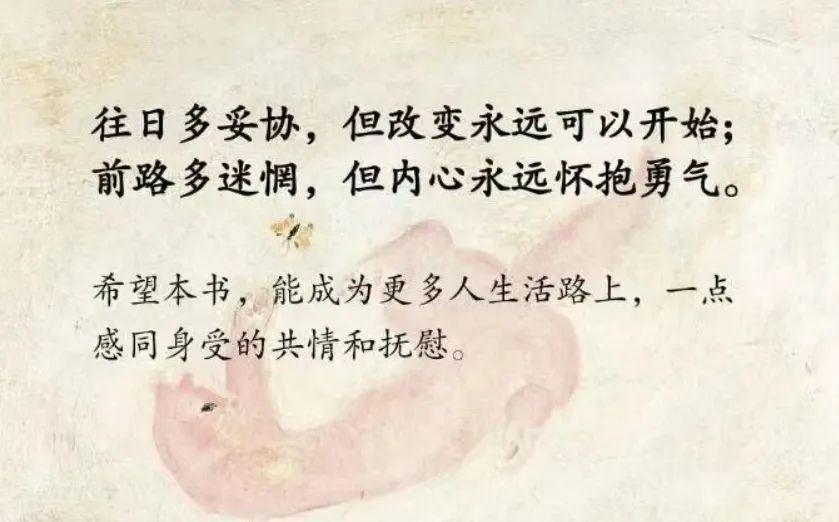 往日多妥协，但改变永远可以开始；
前路多迷惘，但内心永远怀抱勇气。
希望本书，能成为更多人生活路上，一点
感同身受的共情和抚慰。